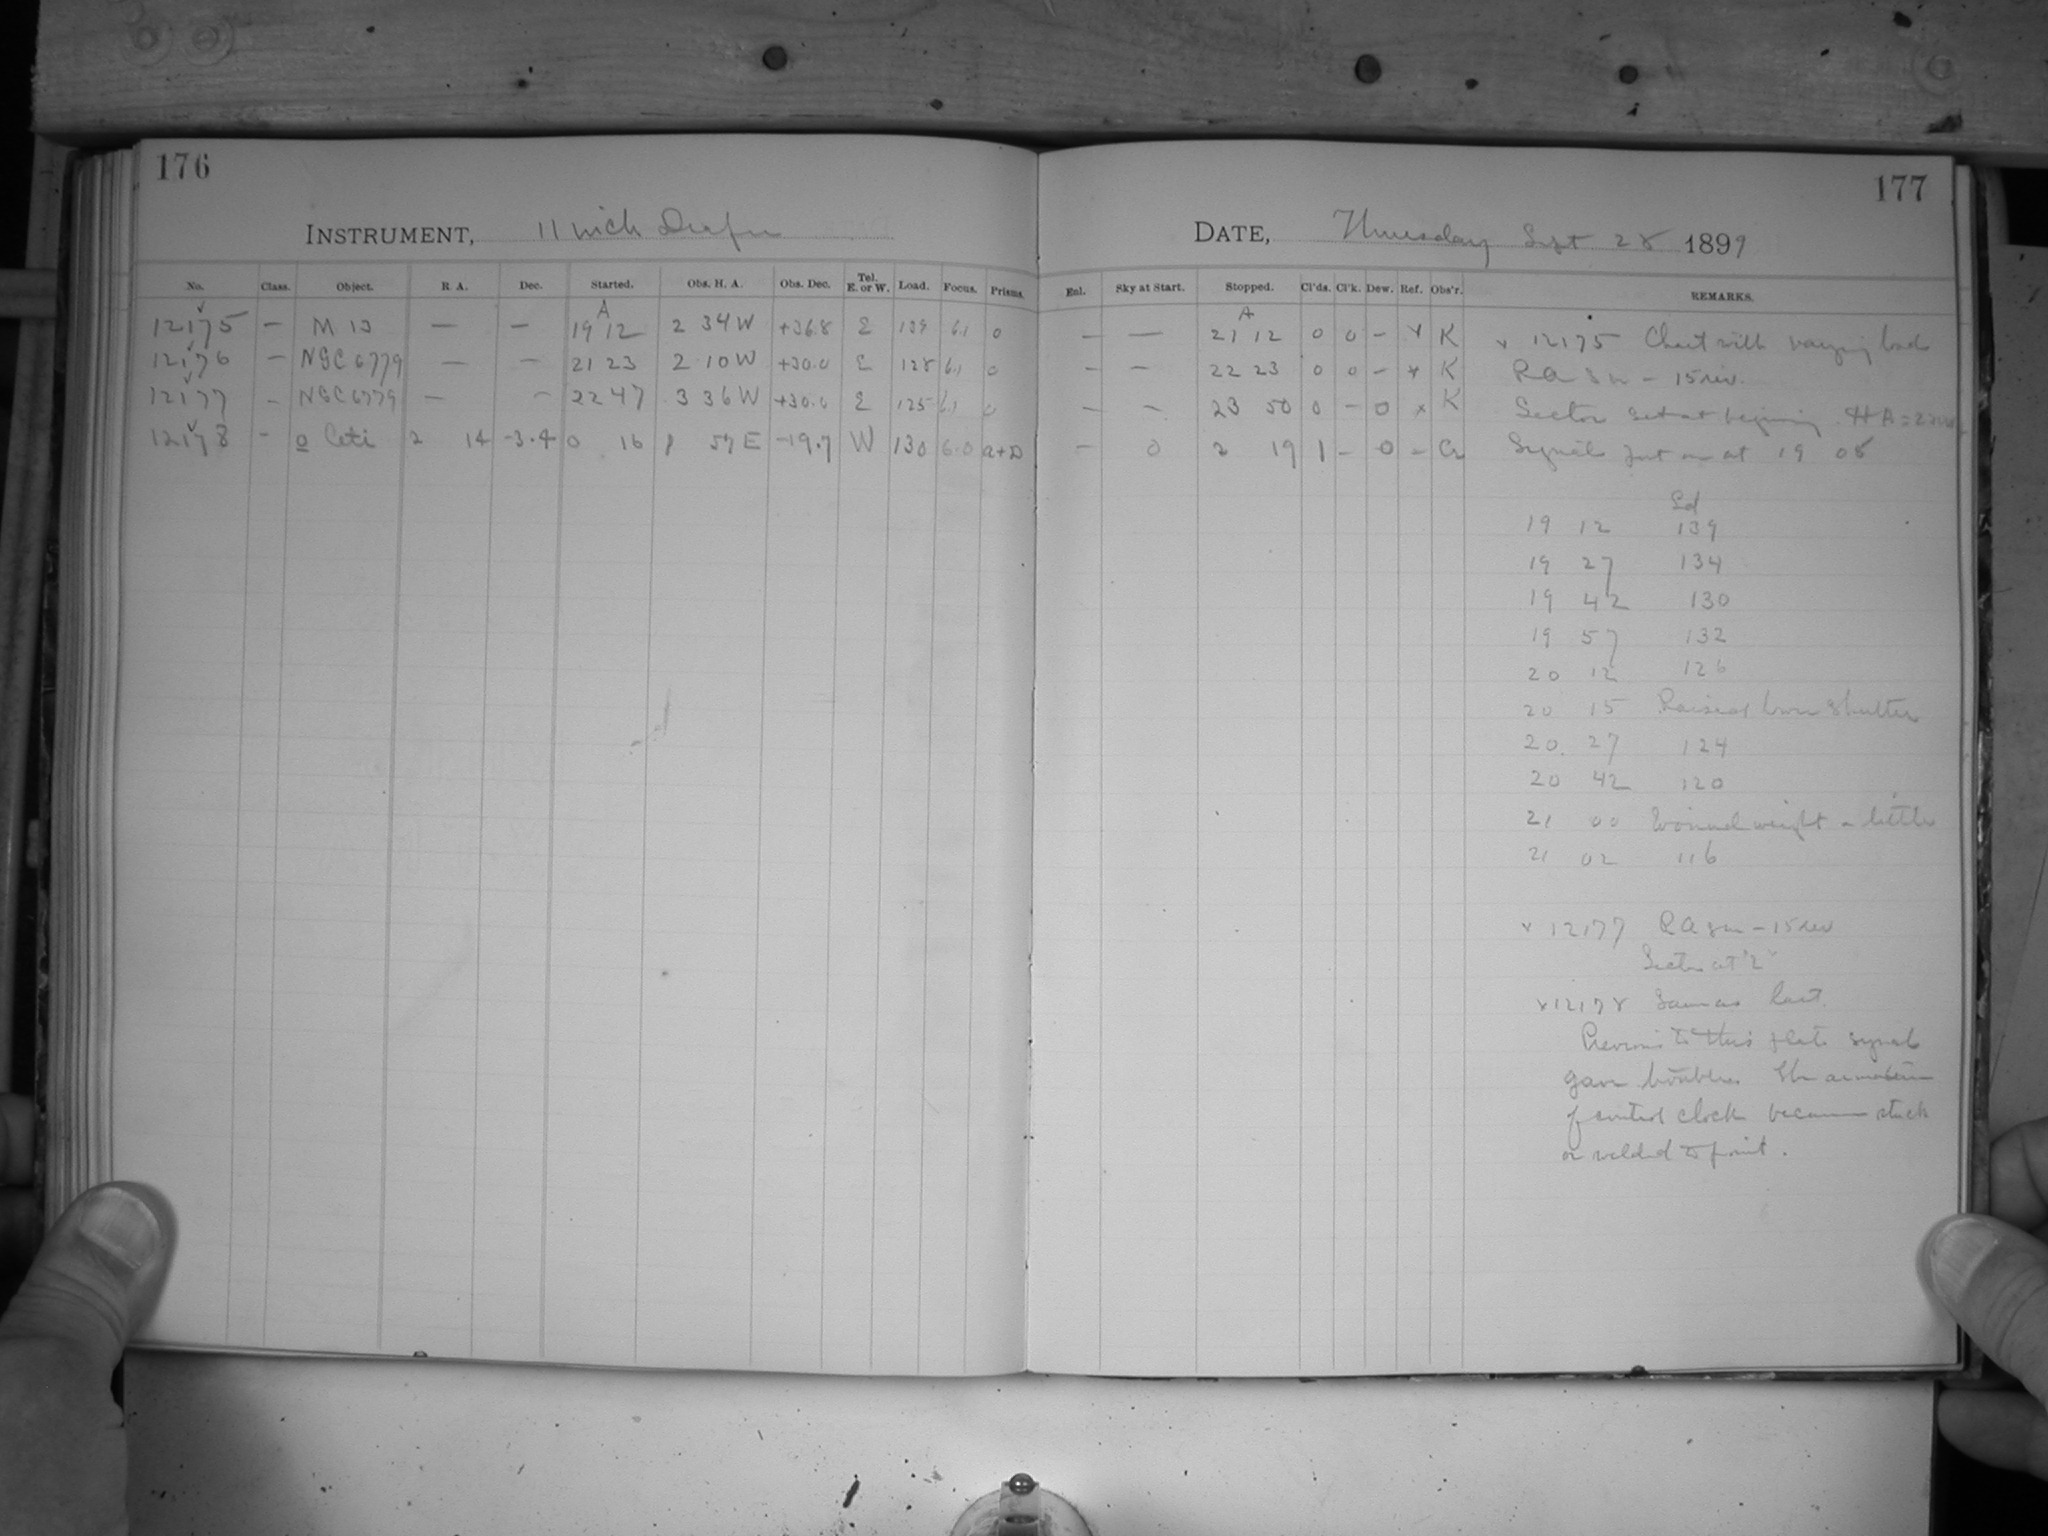 176
INSTRUMENT, 11 inch Draper
No. Class. Object. R. A. Dec. Started. Obs. H. A. Obs. Dec. Tel. E. or W. Load. Focus. Prisms.
A
12175 — M 13 — — 19 12 2 34 W +36.8 E 139 6.1 0
12176 — NGC 6779 — — 21 23 2 10 W +30.0 E 128 6.1 0
12177 - NGC 6779 — — 22 47 3 36 W +30.0 E 125 6.1 0
12178 - o Ceti 2 14 -3.4 0 16 1 57 E -19.7 W 130 6.0 a+D
177
DATE, Thursday Sept 28 1899
Enl. Sky at Start. Stopped. Cl'ds. Cl'k. Dew. Ref. Obs'r. REMARKS.
A
— — 21 12 0 0 - x K x 12175 Chart with varying load
- — 22 23 0 0 - x K RA 8m - 15 rev.
- - 23 50 0 - 0 x K Sector set at begining HA =
- 0 2 19 1 - 0 - Cr Signals put on at 19 08
Ld
19 12 139
19 27 134
19 42 130
19 57 132
20 12 126
20 15 Raised lower shutter
20. 27 124
20 42 120
21 00 Wound weight a little
21 02 116
x 12177 RA 8m - 15 rev
Sector at "2"
x 12178 Same as last.
Previous to this plate signals
gave troubles The armature
of control clock became stuck
or welded to point.